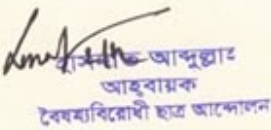 আব্দুল্লাহ
আহবায়ক
বৈষম্যবিরোধী ছাত্র আন্দোলন